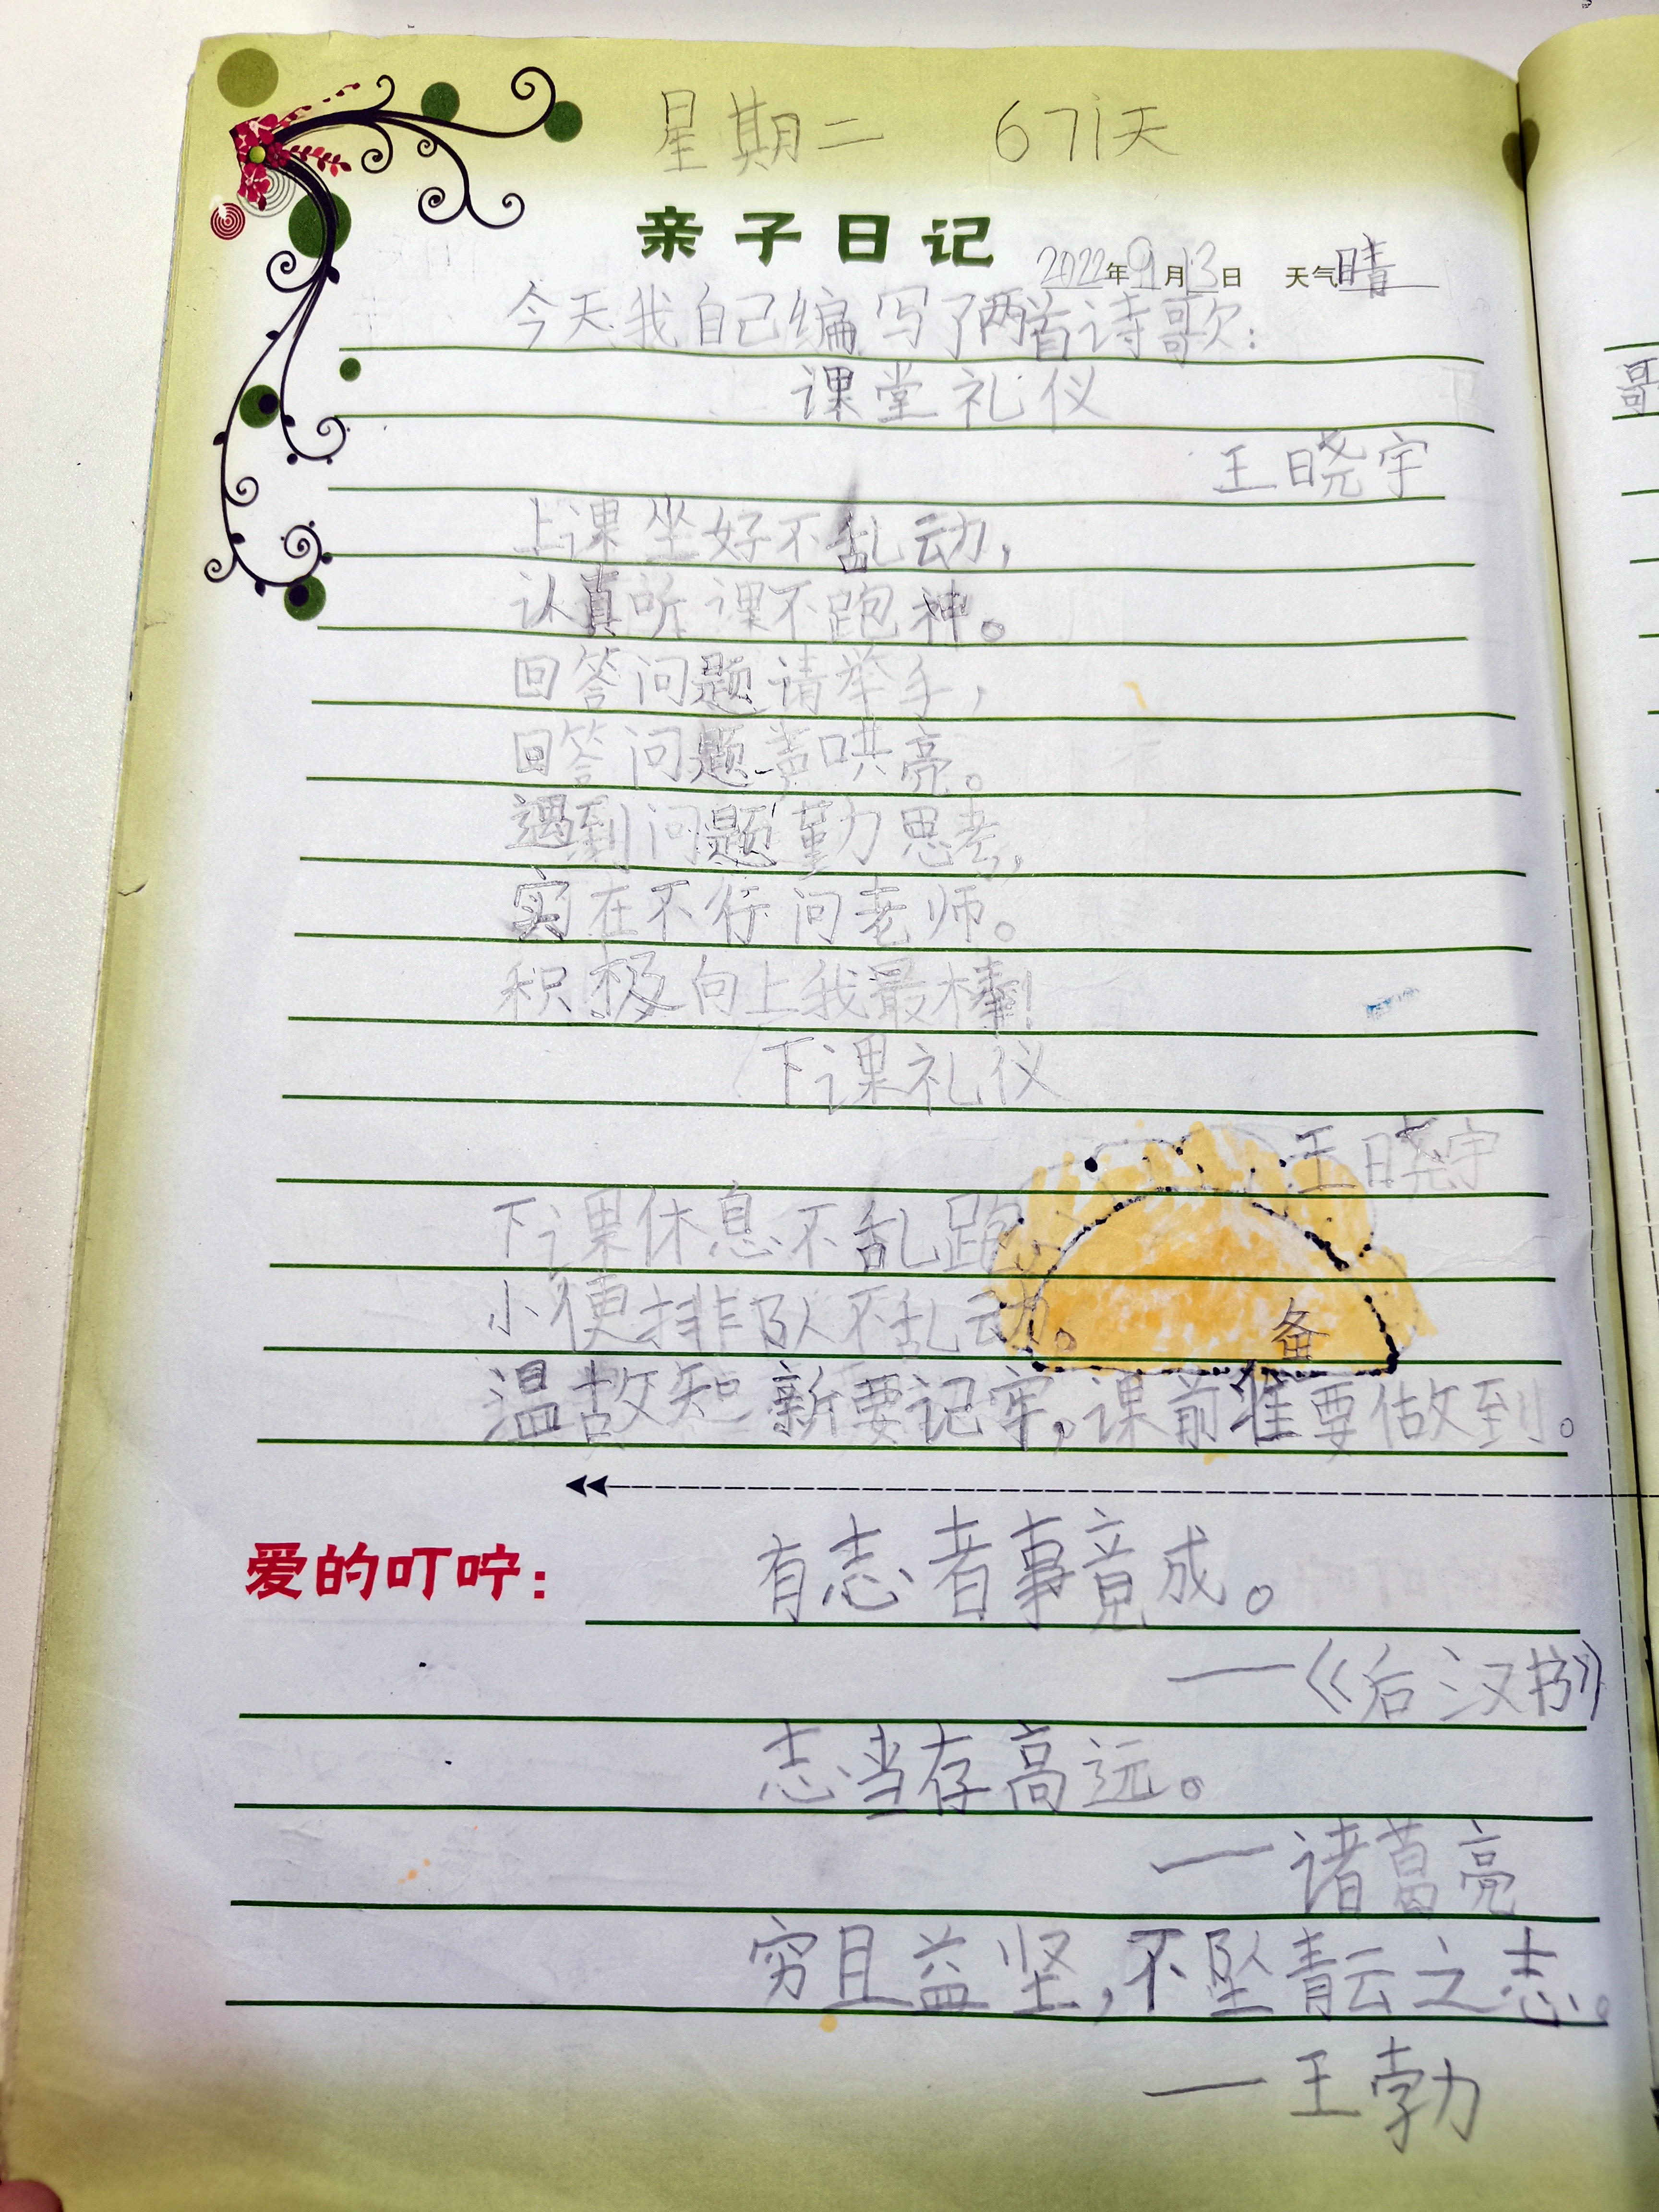 星期二 671天
亲子日记 2022年9月13日 天气晴
今天我自己编写了两首诗歌：
课堂礼仪
王晓宇
上课坐好不乱动，
认真听课不跑神。
回答问题请举手，
回答问题声哄亮。
遇到问题勤思考，
实在不行问老师。
积极向上我最棒！
下课礼仪
王晓宇
下课休息不乱跑，
小便排队不乱动。
备
温故知新要记牢，课前准要做到。
爱的叮咛：有志者事竟成。
——《后汉书》
志当存高远。
——诸葛亮
穷且益坚，不坠青云之志。
——王勃